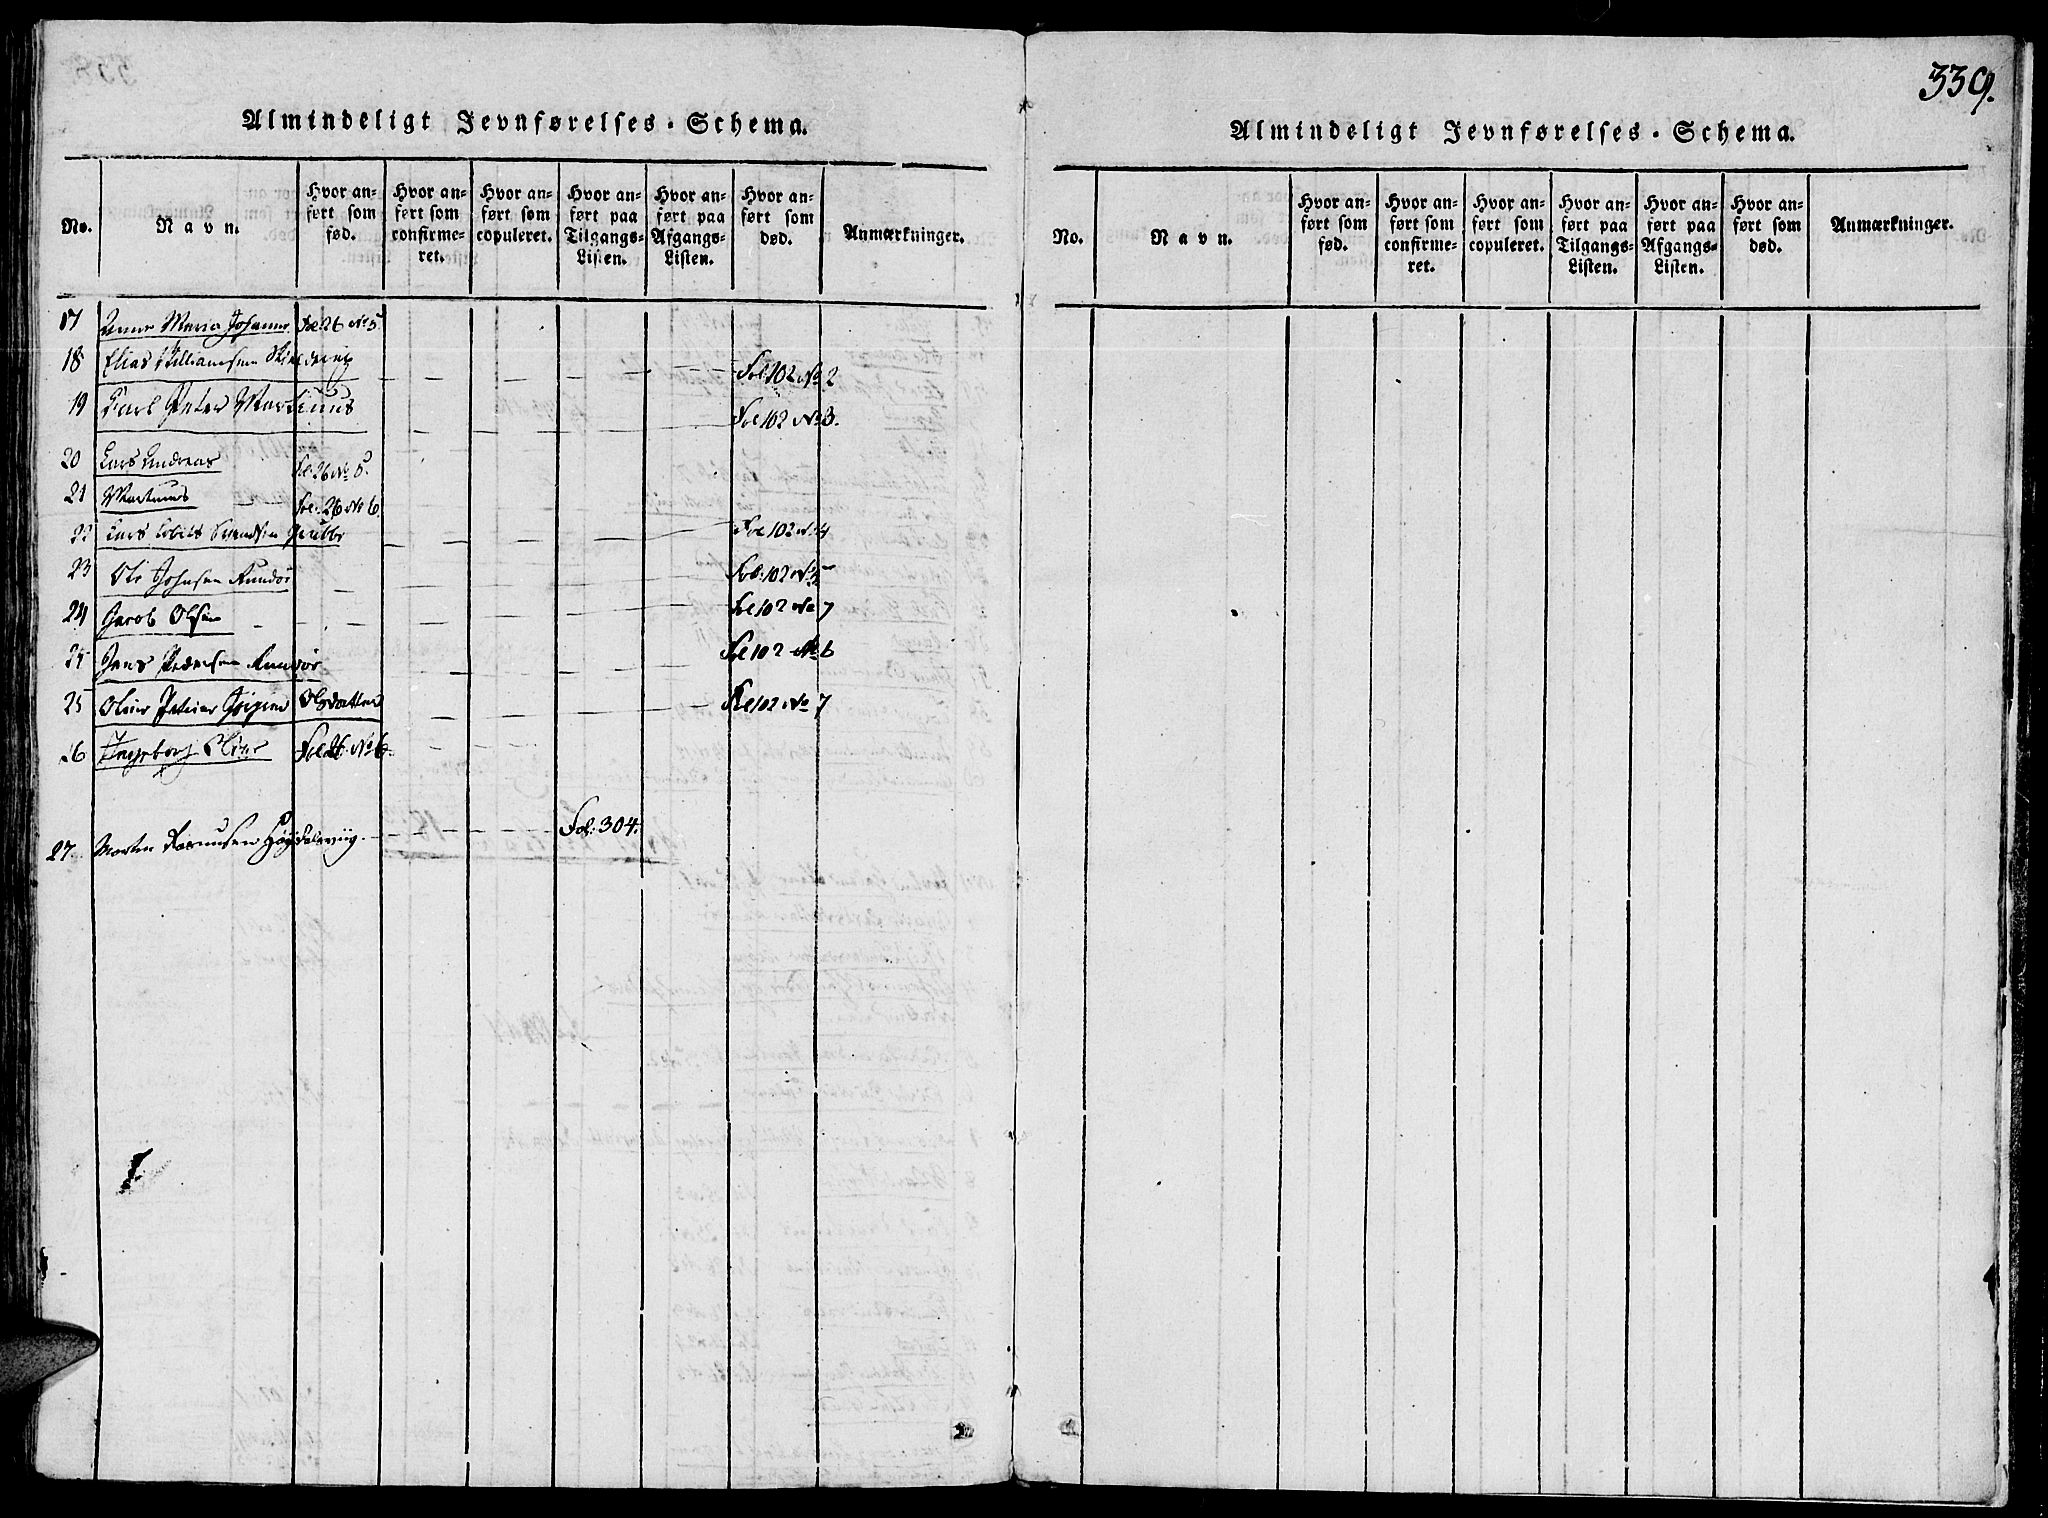 Almindeligt Jevnførelses-Schema.
No. Navn. Hvor anført som fød. Hvor anført som confirmeret. Hvor anført som copuleret. Hvor anført paa Tilgangs-Listen. Hvor anført paa Afgangs-Listen. Hvor anført som død. Anmærkninger.
17 Anne Maria Johanne Fol: 26 No 5.
18 Elias Willumsen Fol: 102 No 2
19 Carl Peter Martinus Fol 102 No 3.
20 Lars Andreas Fol: 26 No 5.
21 Martinus Fol: 26 No 6.
22 Lars Fol 102 No 4
23 Ole Johnsen Fol: 102 No 5
24 Jacob Olsen Fol 102 No 7
25 Jens Pedersen Fol 102 No 6
25 Oline Olsdatter Fol 102 No 7
26 Ingeborg Oline Fol 26. No 6.
27. Morten Rasmusen Fol: 304.
339.
Almindeligt Jevnførelses-Schema.
No. Navn. Hvor anført som fød. Hvor anført som confirmeret. Hvor anført som copuleret. Hvor anført paa Tilgangs-Listen. Hvor anført paa Afgangs-Listen. Hvor anført som død. Anmærkninger.